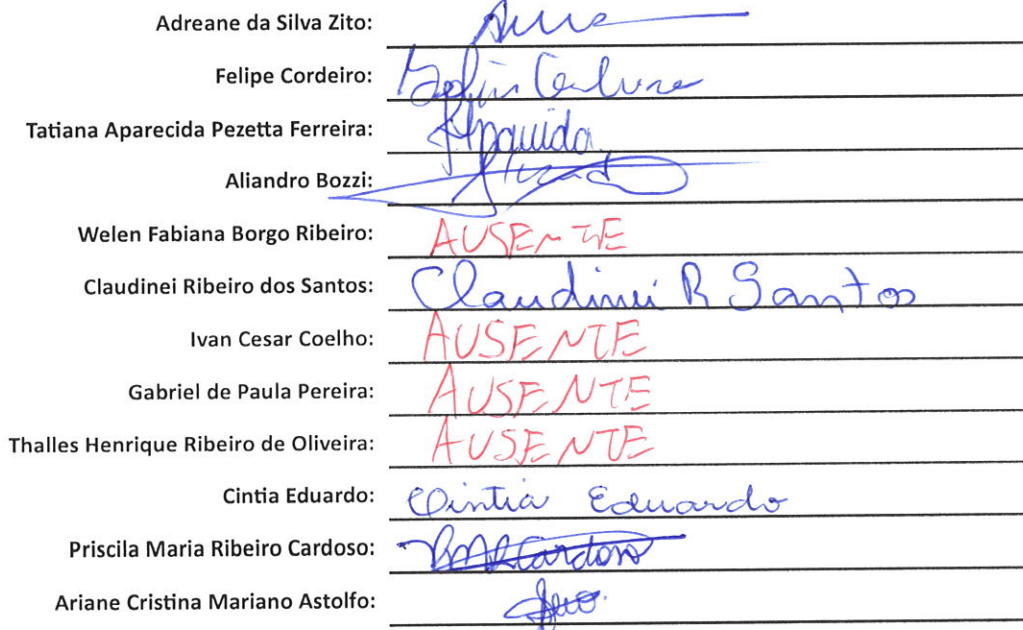 Adreane da Silva Zito:
Felipe Cordeiro:
Tatiana Aparecida Pezetta Ferreira: Aparecida
Aliandro Bozzi:
Welen Fabiana Borgo Ribeiro: AUSENTE
Claudinei Ribeiro dos Santos: Claudinei R Santos
Ivan Cesar Coelho: AUSENTE
Gabriel de Paula Pereira: AUSENTE
Thalles Henrique Ribeiro de Oliveira: AUSENTE
Cintia Eduardo: Cintia Eduardo
Priscila Maria Ribeiro Cardoso: PMRCardoso
Ariane Cristina Mariano Astolfo: